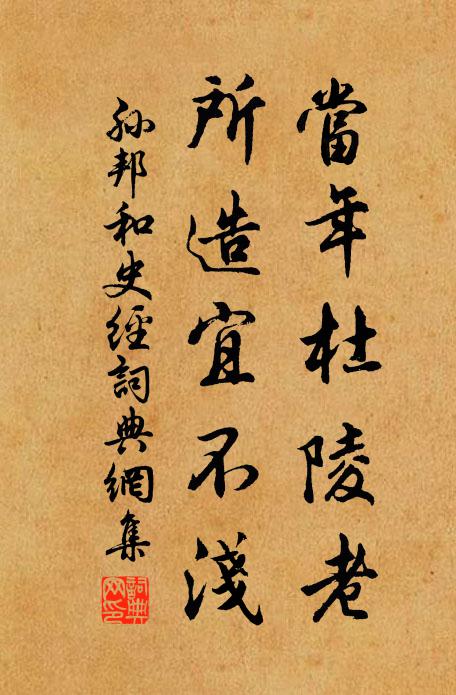 當年杜陵老
所造宜不淺
孫邦和史經詞典網集
詞典网印